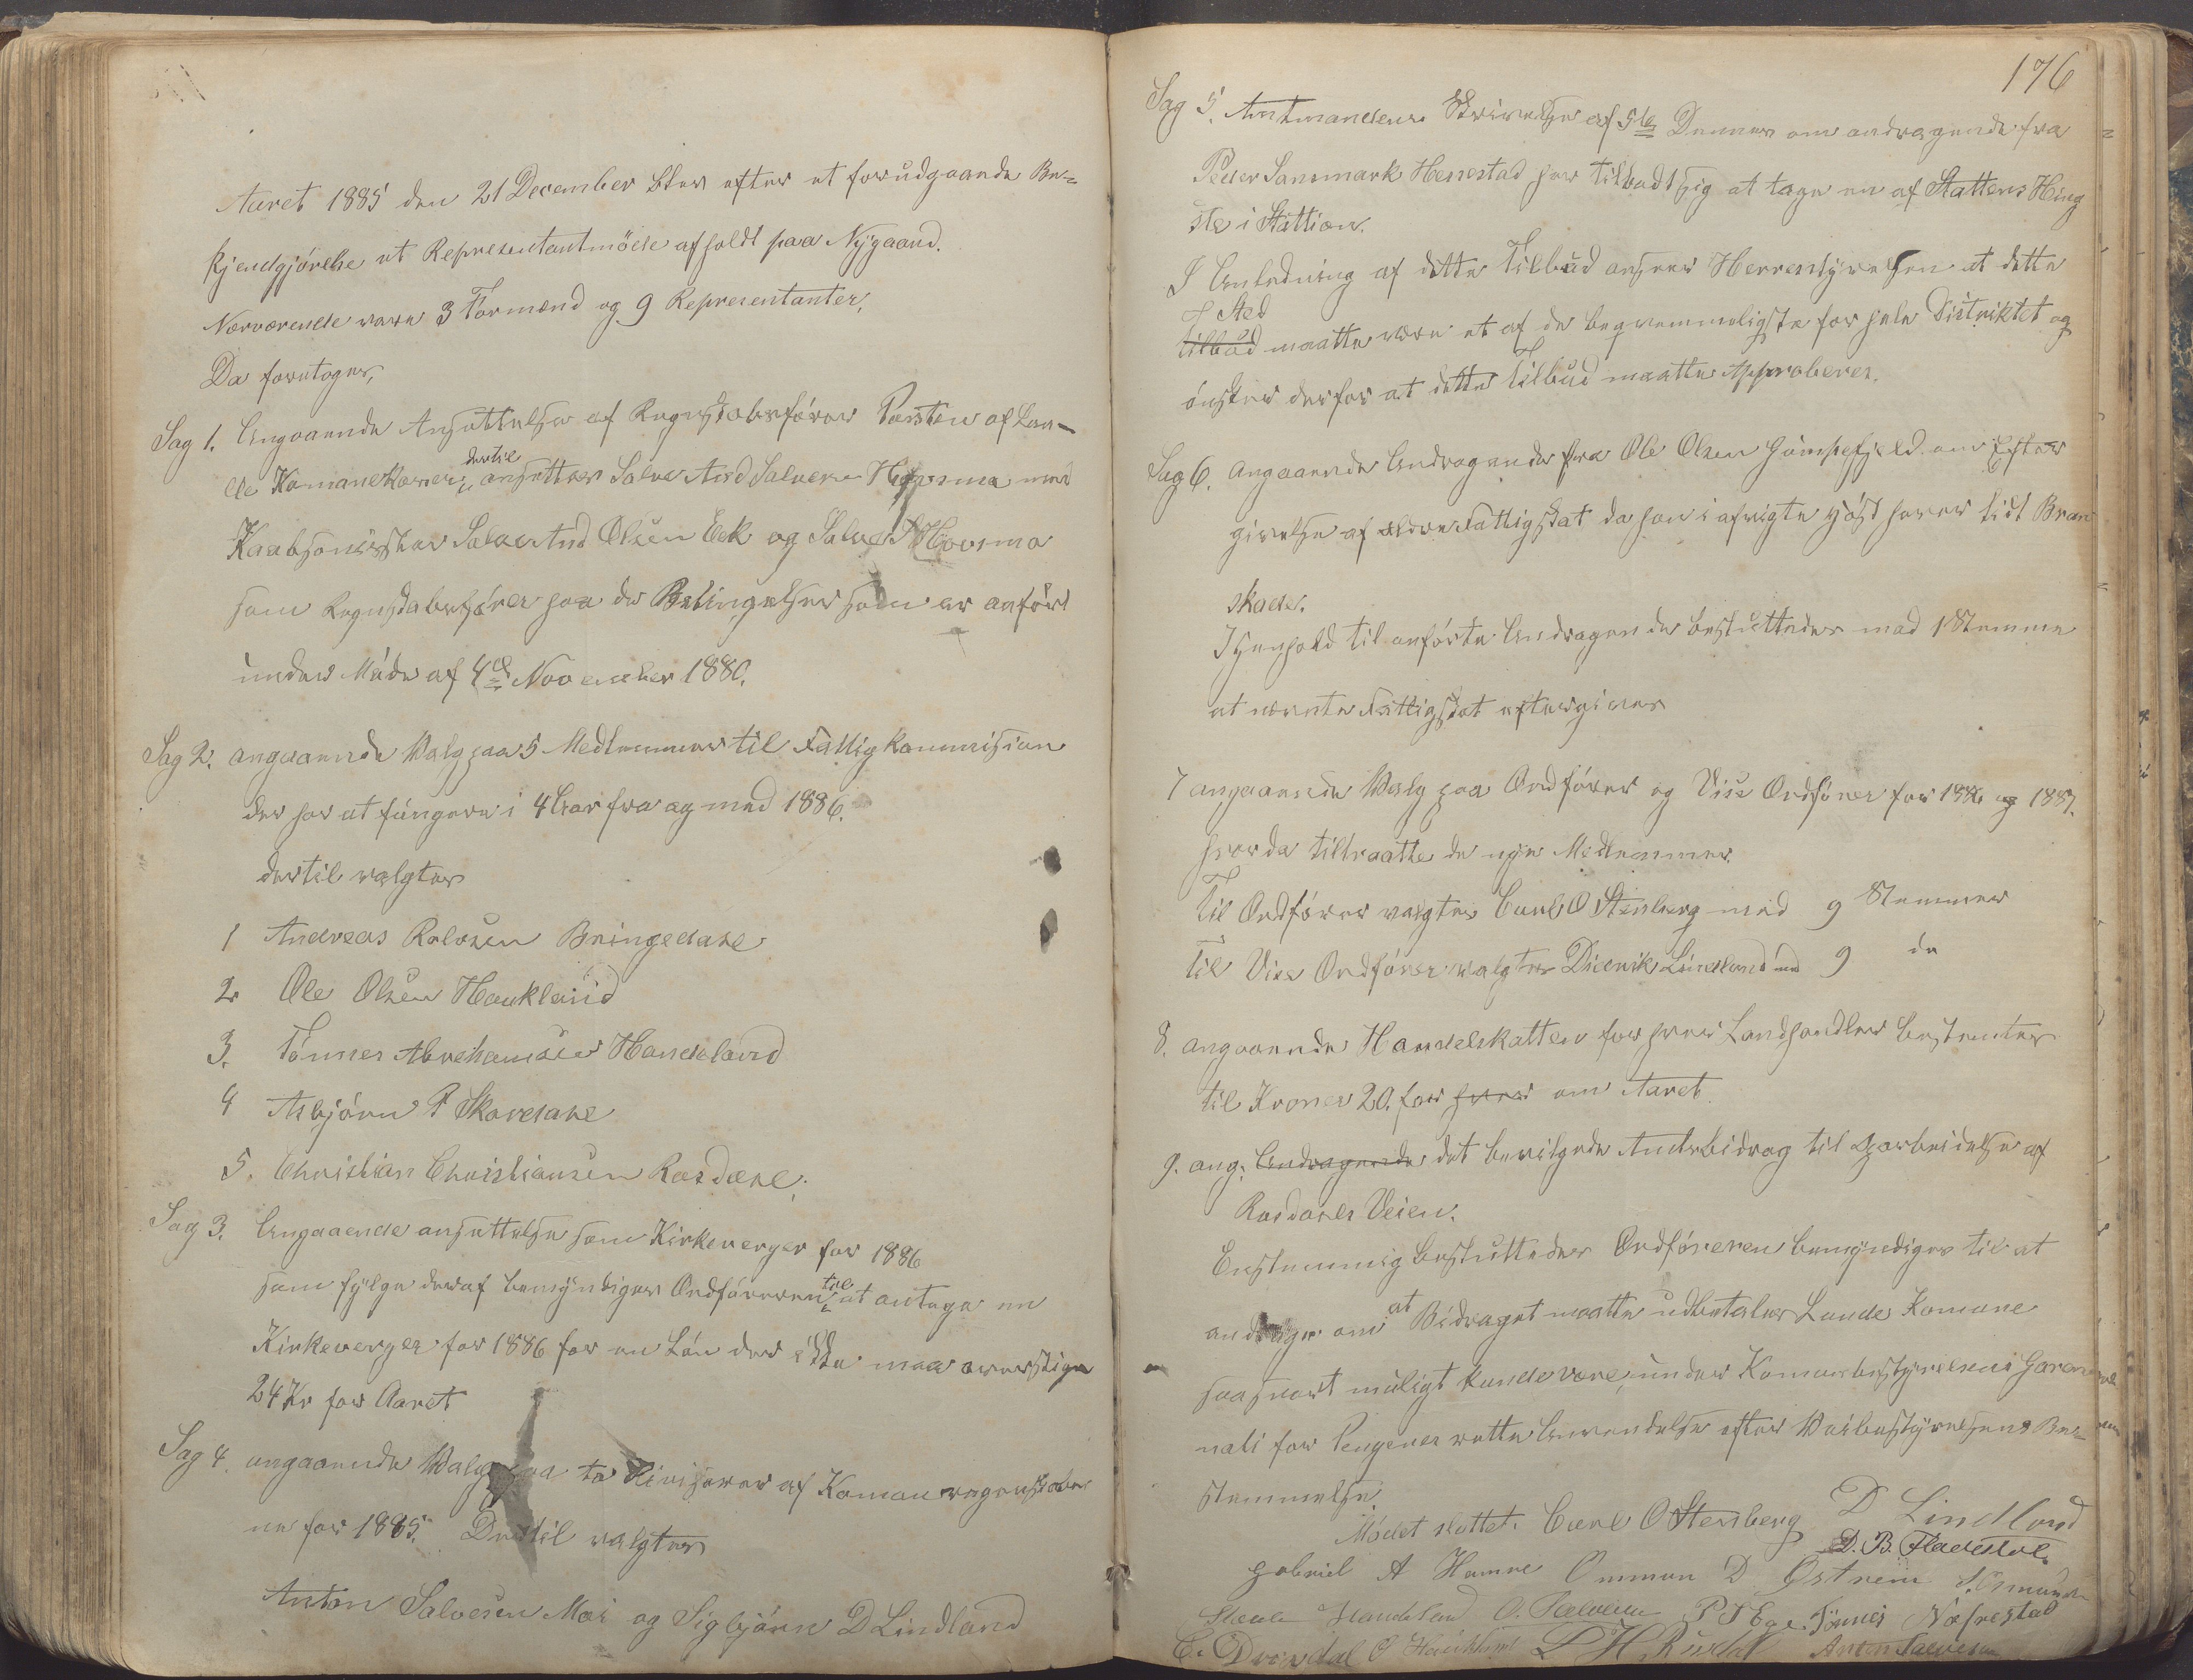 Aaret 1885 den 21 December blev efter et forudgaaende Be-
kjendgjörelse et Representantmöde afholdt paa Nÿgaard.
Nærværende vare 3 Formænd og 9 Representanter,
Da foretoges,
Sag 1. Angaaende Ansættelse af Regnskabsfører af Lun-
de Komunekasse; dertil ansættes Salve And Salvesen med
Salve And Olsen Eek og Salve
som Regnskabsfører paa de Betingelser som er anført
under Möde af 4de November 1880.
Sag 2. angaaende Valg paa 5 Medlemmer til Fattigkommision
der har at fungere i 4 Aar fra og med 1886.
dertil valgtes
1 Andreas Rolvsen Bringedahl
2 Ole Olsen Haukland
3. Tönnes Abrahamsen Handeland
4 Asbjörn P Skaredahl
5. Christian Christiansen Rosdahl,
Sag 3. Angaaende ansættelse som Kirkeverger for 1886
som fÿlge deraf bemÿndiges Ordføreren til at antage en
Kirkeverger for 1886 for en Løn der ikke maa overstige
24 Kr for Aaret
Sag 4. angaaende Valg paa to Revisorer af Komuneregnskaber
ne for 1885. Dertil valgtes
Anton Salvesen Moi og Sigbjörn D Lindland
176
Sag 5. Amtmandens Skrivelse af 5te Dennes om andragende fra
Peder Sansmark Hæstad har tilbudt sig at tage en af Stattens Hing
ste i Stattion.
I Anledning af dette Tilbud anser Herrestÿrelsen at dette
Sted
tilbud maatte være et af de beqvemmeligste for hele Distriktet og
ønsker derfor at dette Tilbud maatte Approberes.
Sag 6. angaaende Andragende fra Ole Olsen Gumpefjeld om Efter
givelse af ældre Fattigskat da han i afvigte Høst haver lidt Bran
skade.
I Henhold til anførte Andragende besluttedes mod 1 Stemme
at nævnte Fattigskat eftergives
7 angaaende Valg paa Ordfører og Vise Ordfører for 1886 og 1887.
hvor da tiltraatte de nÿe Medlemmer
Til Ordfører valgtes Carl O Stenberg med 9 Stemmer
Til Vise Ordfører valgtes Didrik Lindland med 9 do
8. angaaende Handelskatten for hver Landhandler bestemtes
til Kroner 20. for hver om Aaret.
9. ang: Andragende det bevilgede Amtsbidrag til Oparbeidelse af
Rosdahls Veien.
Enstemmig besluttedes Ordføreren bemÿndiges til at
andrage om at Bidraget maatte udbetales Lunde Komune
saasnart muligt kunde være, under Komunebestÿrelsens Garan
nati for Pengenes rette Anvendelse efter Veibestÿrelsens Be-
stemmelse.
Mödet sluttet. Carl O Stenberg D Lindland
D. B. Fladstöl.
Gabriel A Hamre Ommun D Østreim
Handeland O. Salvesen P T Ege. Tønnes Næfrestad
Anton Salvesen